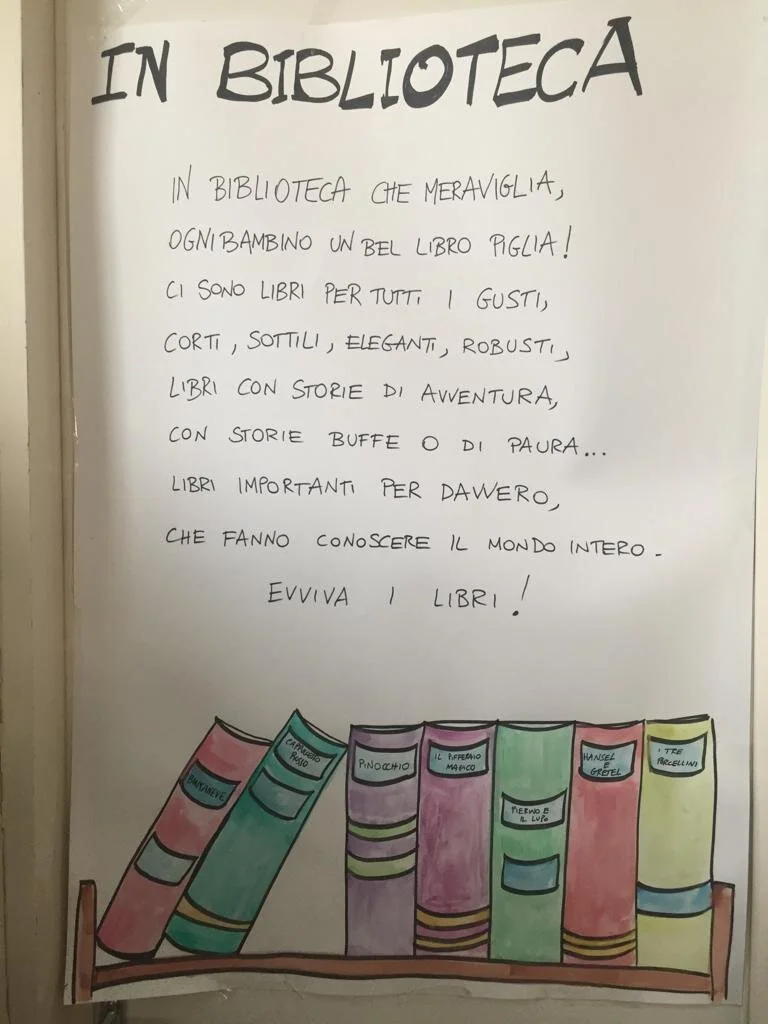 IN BIBLIOTECA
IN BIBLIOTECA CHE MERAVIGLIA,
OGNI BAMBINO UN BEL LIBRO PIGLIA!
CI SONO LIBRI PER TUTTI I GUSTI,
CORTI, SOTTILI, ELEGANTI, ROBUSTI,
LIBRI CON STORIE DI AVVENTURA,
CON STORIE BUFFE O DI PAURA...
LIBRI IMPORTANTI PER DAVVERO,
CHE FANNO CONOSCERE IL MONDO INTERO.
EVVIVA I LIBRI!
BIANCANEVE
CAPPUCCETTO
ROSSO
PINOCCHIO
IL PIFFERAIO
MAGICO
PIERINO E
IL LUPO
HANSEL
E
GRETEL
I TRE
PORCELLINI